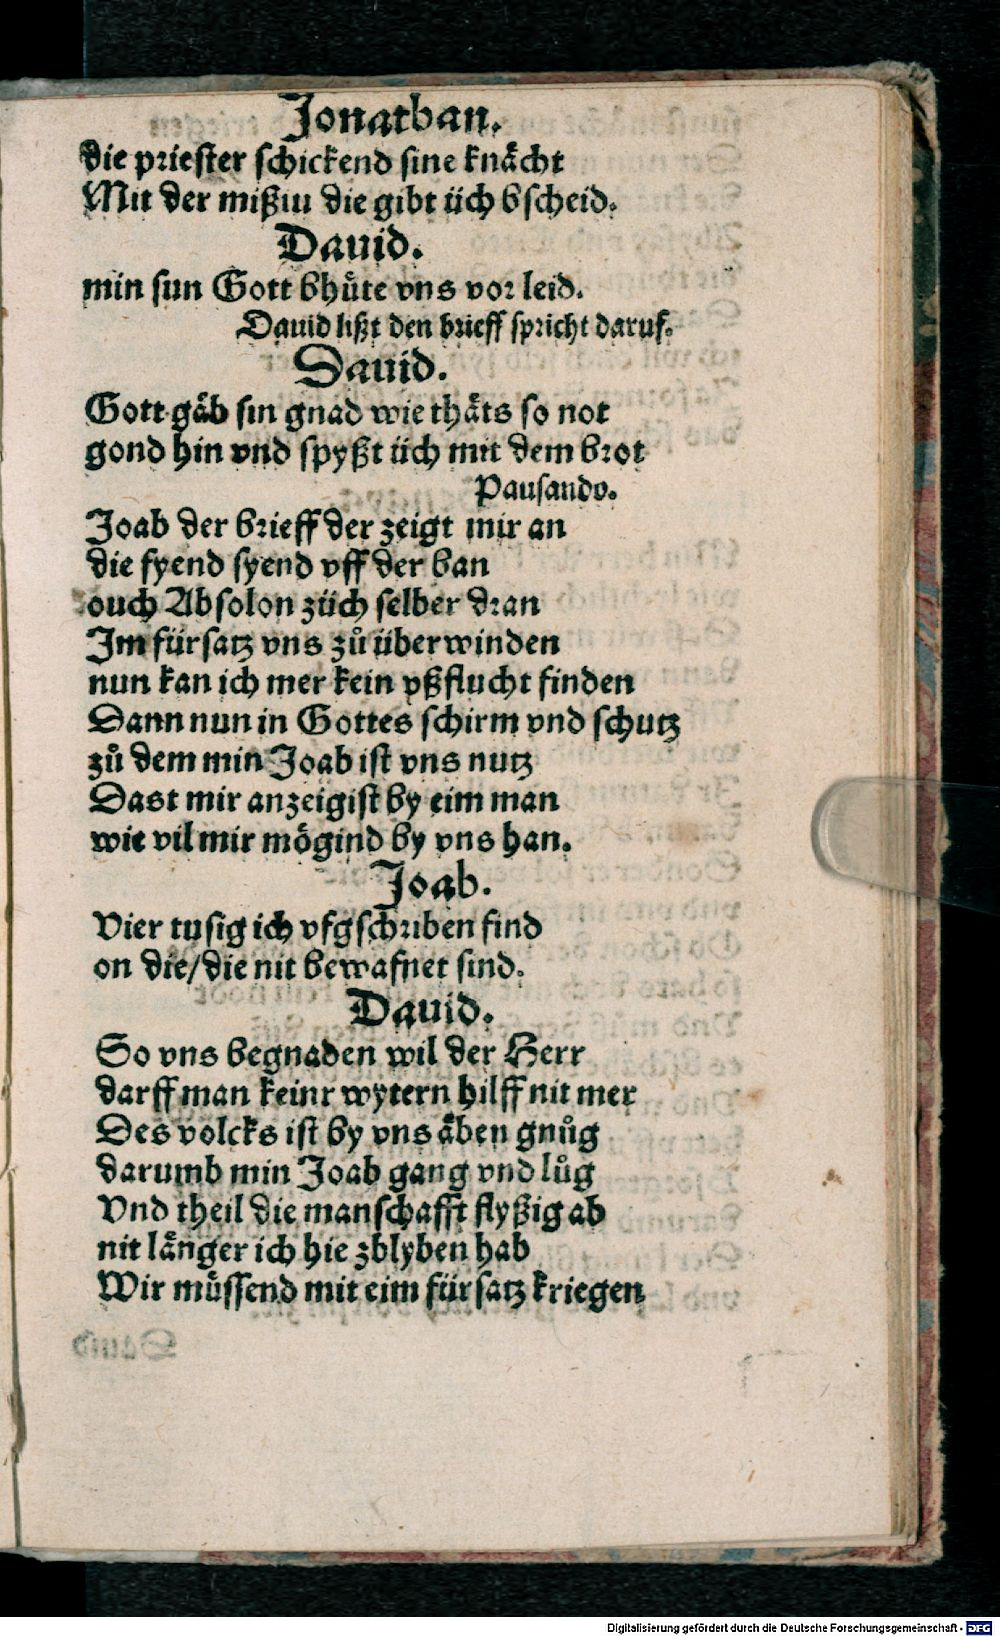 Jonathan.
die priester schickend sine knächt
Mit der mißiu die gibt üch bscheid.
Dauid.
min sun Gott bhuͤte vns vor leid.
Dauid lißt den brieff spricht daruf.
Dauid.
Gott gäb sin gnad wie thäts so not
gond hin vnd spyßt üch mit dem brot
Pausando.
Joab der brieff der zeigt mir an
die fyend syend vff der ban
ouch Absolon züch selber dran
Im fürsatz vns zů überwinden
nun kan ich mer kein vßflucht finden
Dann nun in Gottes schirm vnd schutz
zů dem min Joab ist vns nutz
Dast mir anzeigist by eim man
wie vil mir mögind by vns han.
Joab.
Vier tusig ich vfgschriben find
on die/die nit bewafnet sind.
Dauid.
So vns begnaden wil der Herr
darff man keinr wytern hilff nit mer
Des volcks ist by vns äben gnůg
darumb min Joab gang vnd lůg
Vnd theil die manschafft flyßig ab
nit länger ich hie zblyben hab
Wir müssend mit eim fürsatz kriegen
Digitalisierung gefördert durch die Deutsche Forschungsgemeinschaft - DFG